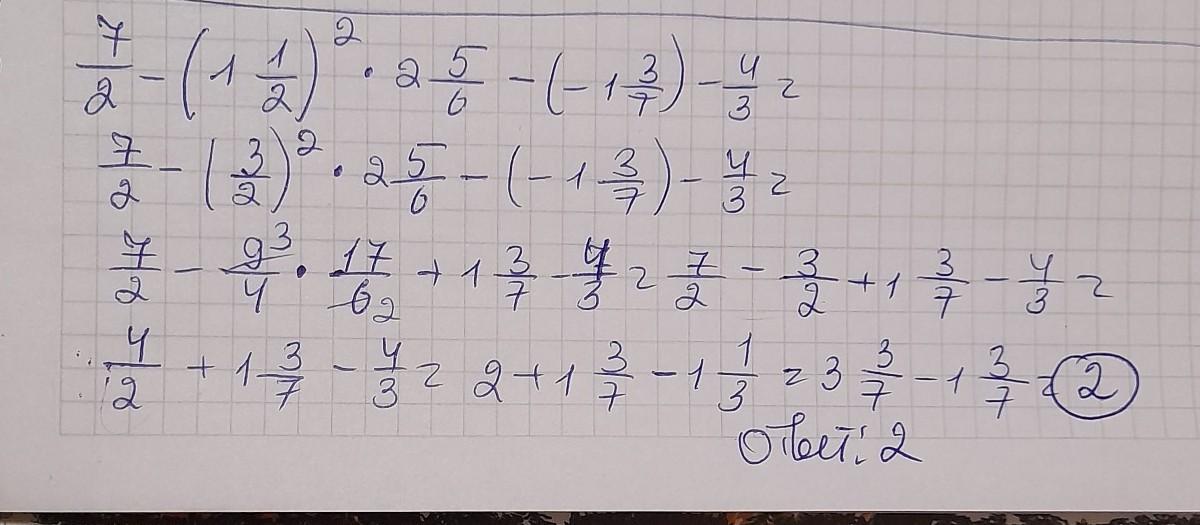 7/2 - (1 1/2)² · 2 5/6 - (-1 3/7) - 4/3 =
7/2 - (3/2)² · 2 5/6 - (-1 3/7) - 4/3 =
7/2 - 9 3/4 · 17/6 2 + 1 3/7 - 4/3 = 7/2 - 3/2 + 1 3/7 - 4/3 =
4/2 + 1 3/7 - 4/3 = 2 + 1 3/7 - 1 1/3 = 3 3/7 - 1 3/7 = 2
Ответ: 2